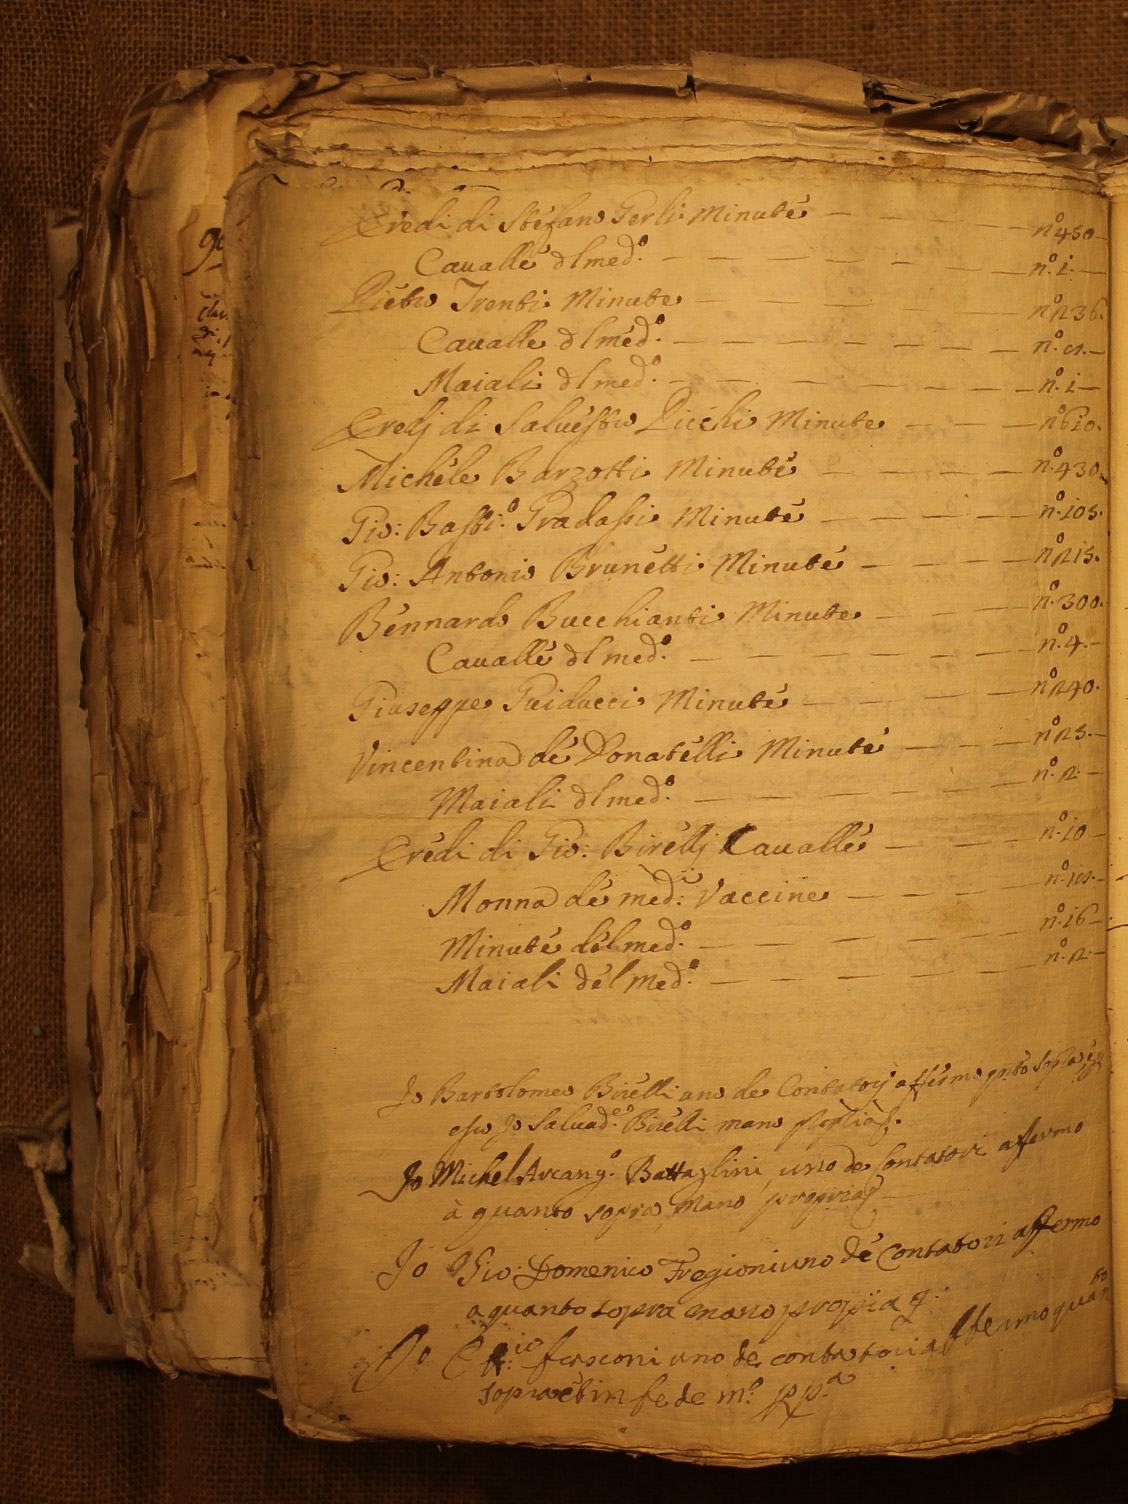 Eredi di Stefano Gerli Minute — — — — n.º 450
Cavalle dl med.º — — — — n.º 1
Pietro Trenti Minute — — — — n.º 236
Cavalle dl med.º — — — — n.º 2
Maiali dl med.º — — — — n.º 1
Eredj di Salvestro Picchi Minute — — — n.º 610
Michele Barzotti Minute — — — n.º 430
Gio: Basti.º Gradassi Minute — — — n.º 105
Gio: Antonio Brunetti Minute — — — n.º 215
Bennardo Bucchianti Minute — — — n.º 300
Cavalle dl med.º — — — — n.º 4
Giuseppe Guiducci Minute — — — n.º 240
Vincentina de Donatelli Minute — — — n.º 25
Maiali dl med.º — — — — n.º 2
Eredi di Gio: Birellj Cavalle — — — n.º 10
Monna de med.ⁱⁱ Vaccine — — — n.º
Minute del med.º — — — — n.º 16
Maiali del med.º — — — — n.º 2
Jo Bartolomeo Birelli uno de Contatorj affermo qnto sopra
Jo Salvad.ʳᵉ Birelli mano
Jo Michel Arcang.º Battaglini uno de Contatori afermo
à quanto sopra mano propria
Jo Gio: Domenico Fregioni uno de Contatori affermo
a quanto sopra mano propia
Jo Frasconi uno de contatori affermo quāto
sopra et in fede m.º pp.ª